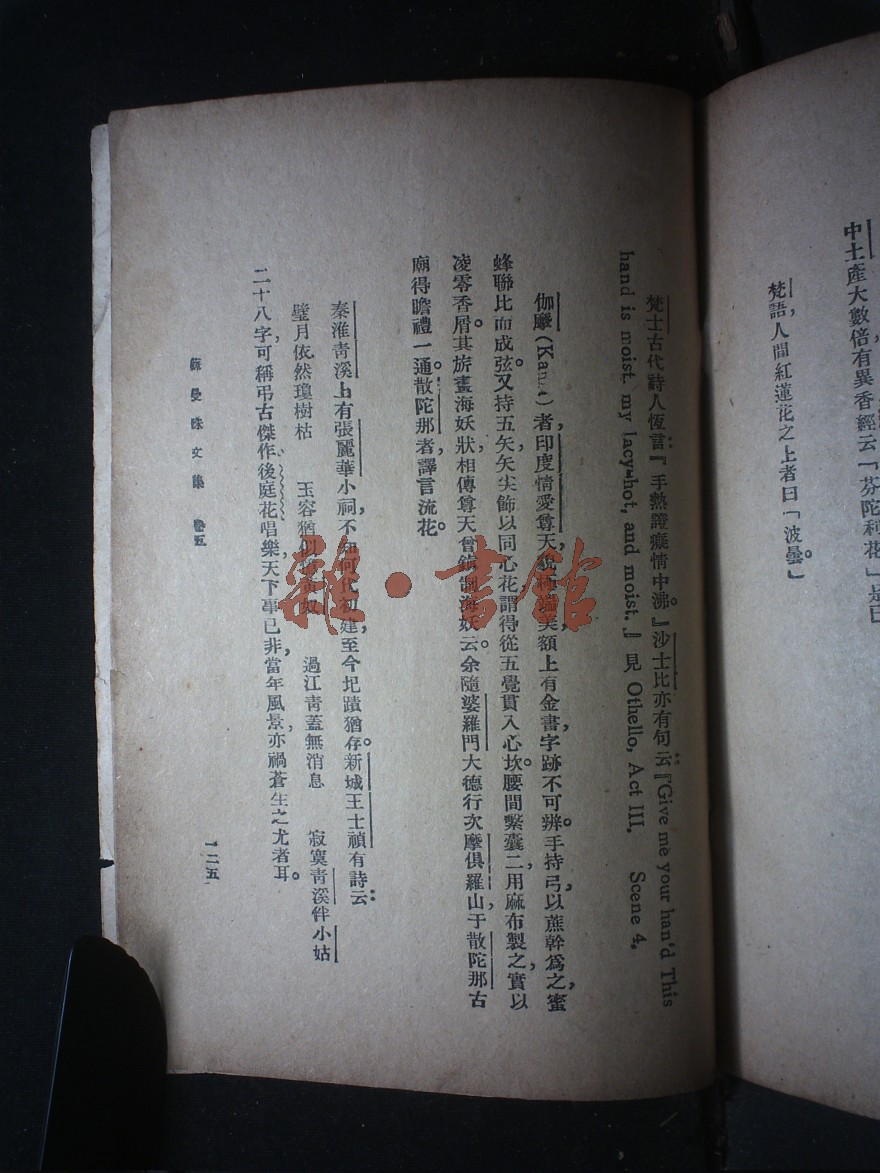 中土產大數倍有異香經云「芬陀利花」是已
梵語，人間紅蓮花之上者曰「波曇」
梵士古代詩人恆言：『手熱證癡情中沸。』沙士比亦有句云：『Give me your han'd This
hand is moist, my lacy-hot, and moist.』見 Othello, Act III. Scene 4.
伽摩(Kama)者，印度情愛尊天，貌極端美，額上有金書，字跡不可辨。手持弓，以蔗幹爲之，蜜
蜂聯比而成弦。又持五矢，矢尖飾以同心花，謂得從五覺貫入心坎。腰間繫囊二，用麻布製之，實以
凌零香屑。其旂畫海妖狀，相傳尊天曾鎮制海妖云。余隨婆羅門大德行次摩俱羅山，于散陀那古
廟得瞻禮一通。散陀那者，譯言流花。
秦淮青溪上有張麗華小祠，不知何代初建，至今圮蹟猶存。新城王士禎有詩云：
璧月依然瓊樹枯 玉容猶似 過江青蓋無消息 寂寞青溪伴小姑
二十八字，可稱弔古傑作。後庭花唱樂，天下事已非，當年風景，亦禍蒼生之尤者耳。
蘇曼殊文集 卷五
一二五
雜·書館